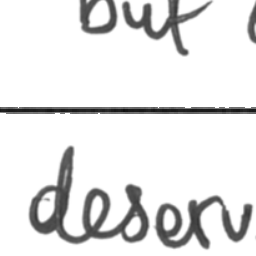 but
deserv